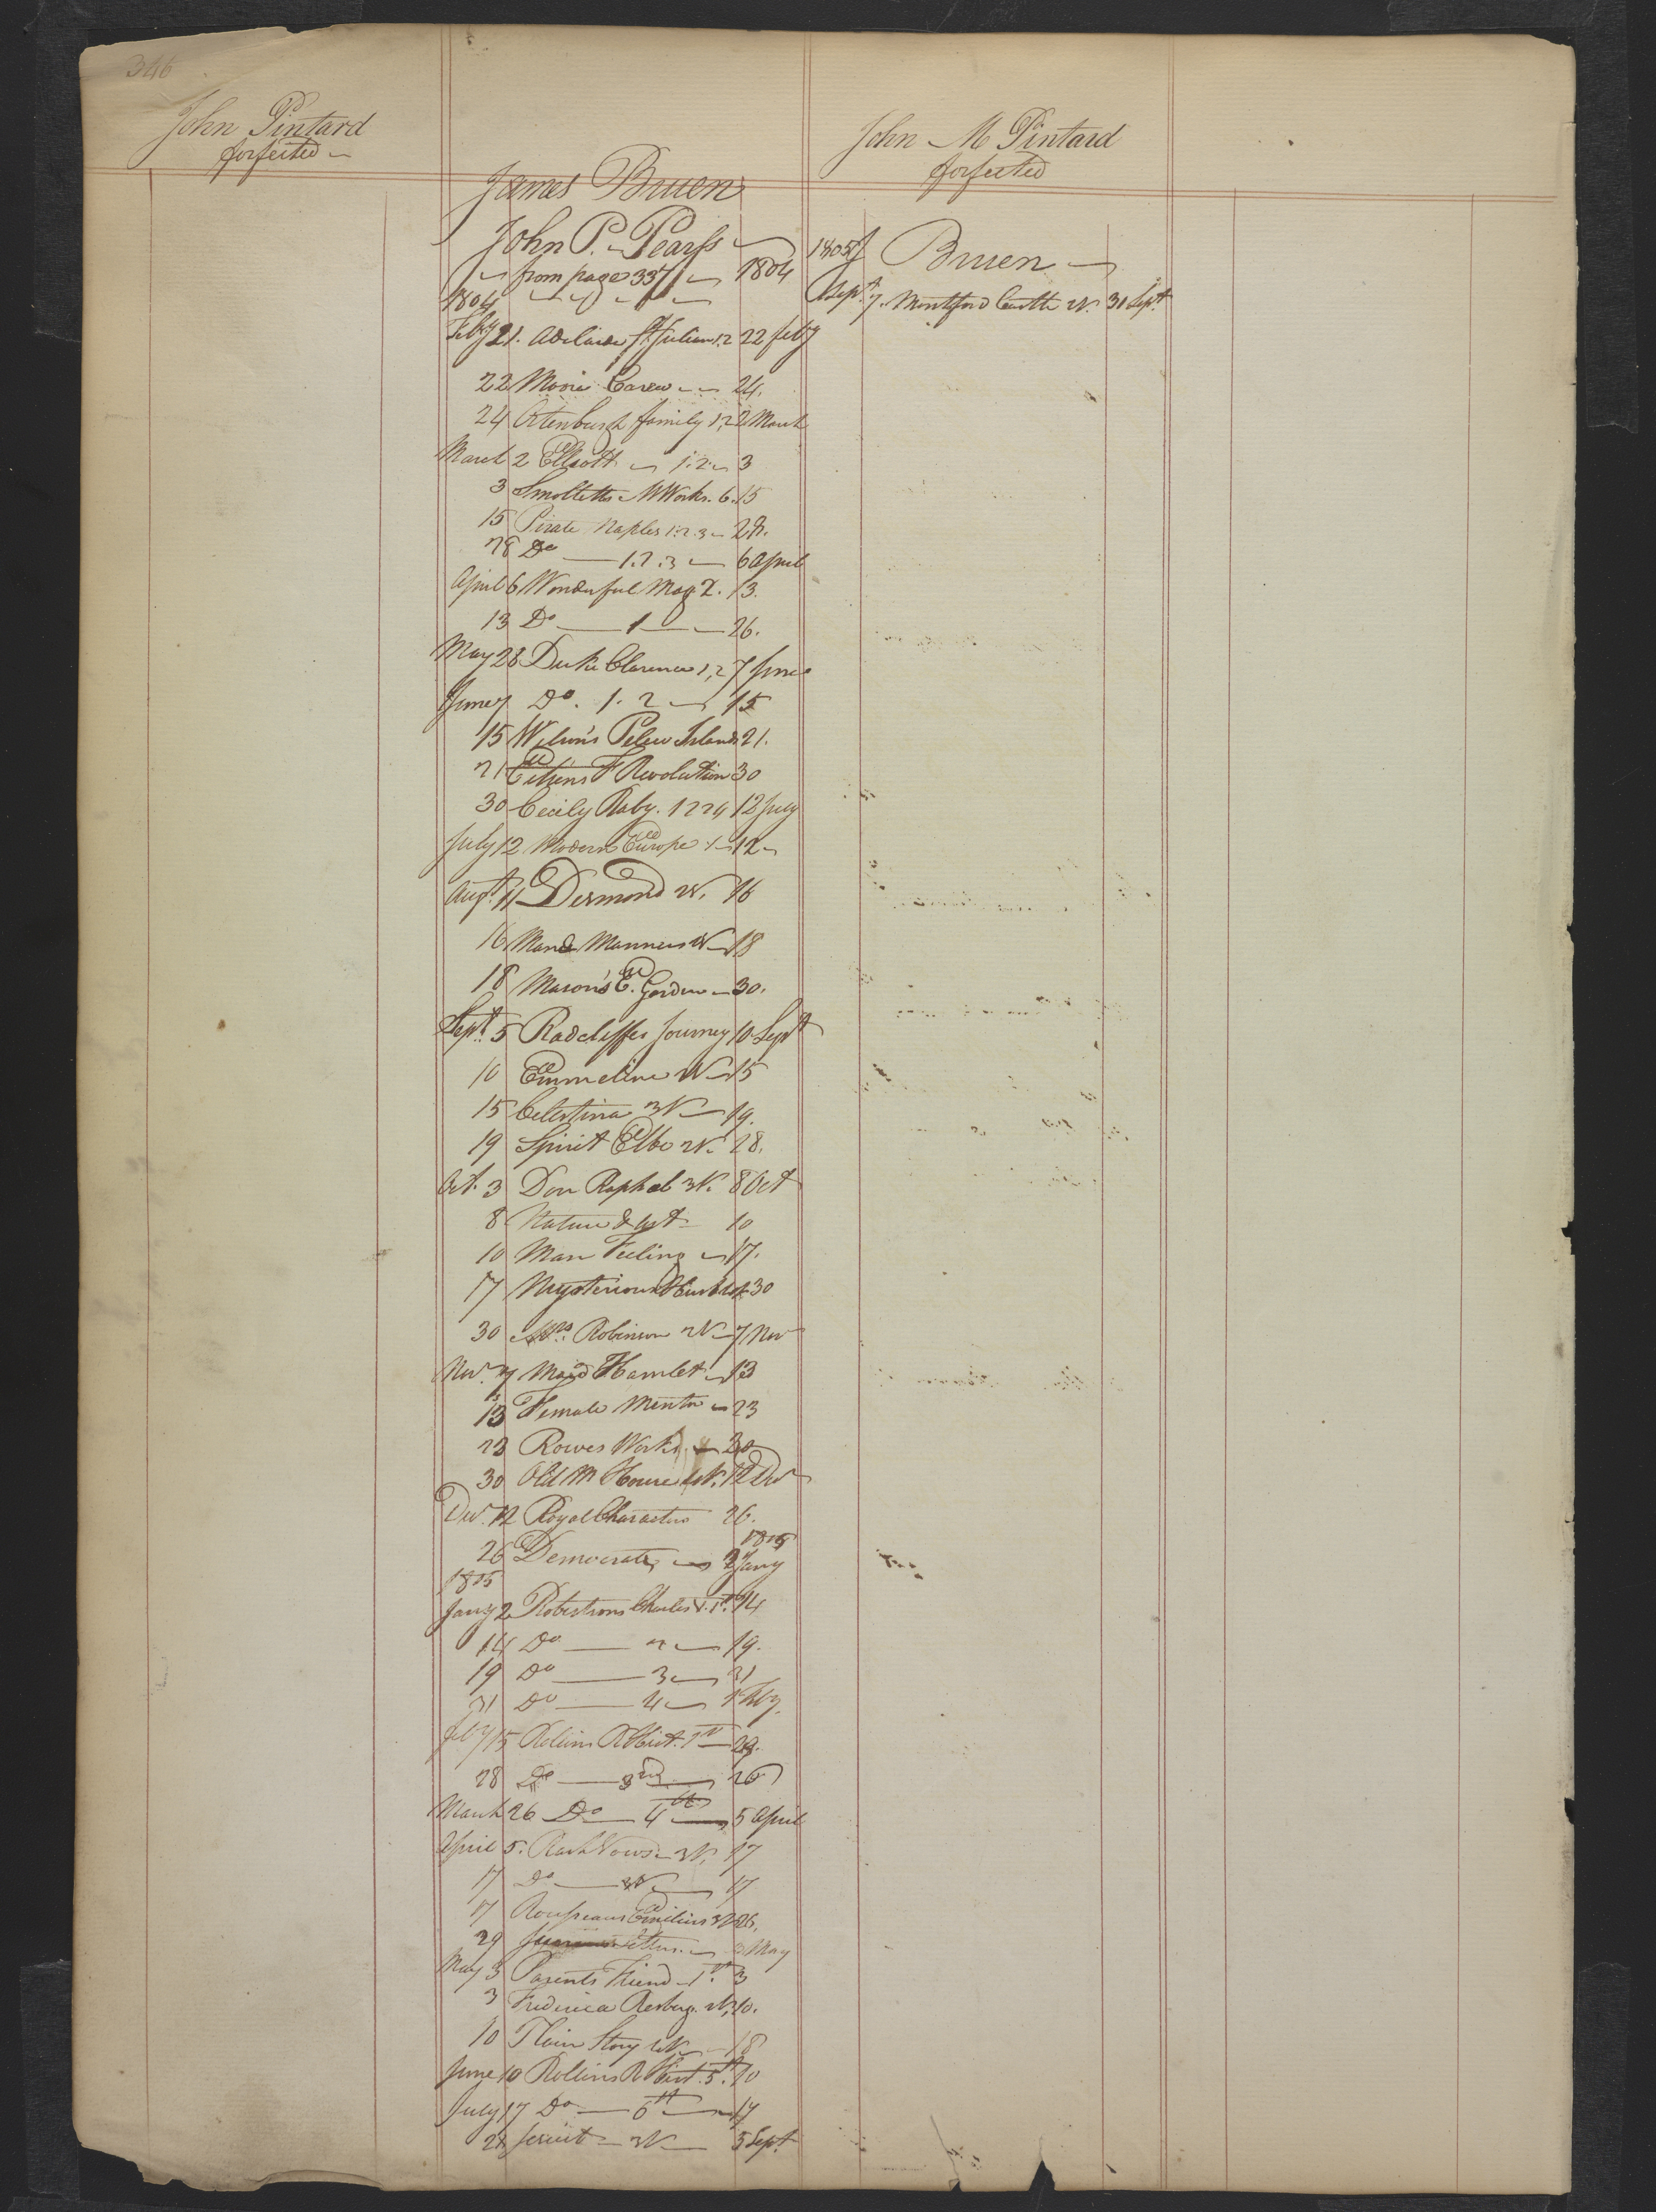 346
John Pintard
forfeited
James Bruen
John P. Pearss
from page 337 1804
1804
Feby 21. Adelaide St Julian 1.2 22 feby
22 Moore Carew 24.
24 Ortenburgh family 1.2 2 March
March 2 Elliott 1.2. 3
3 Smolletts M Works. 6. 15
15 Pirate Naples 1.2.3 28.
28 Do 1.2.3 6 April
April 6 Wonderful Mag 2. 13.
13 Do 1 26.
May 28 Duke Clarence 1,2 7 June
June 7 Do. 1. 2 15
15 Wilson's Pelew Islands 21.
21 F Revolution 30
30 Cecily Raby. 12 July
July 12 Modern Europe 1 12
Augt. 11 Desmond 2V. 16
16 Man & Manners 2V 18
18 Mason's E. Garden 30.
Sept. 5 Radcliffes Journey 10 Sept
10 Emmeline 2V 15
15 Celestina 3V 19.
19 Spirit Elbe 2V. 28.
Oct. 3 Don Raphael 3V. 8 Oct
8 Nature & Art 10
10 Man Feeling 17.
17 Mysterious Husband 30
30 Mrs. Robinson 2V 7 Nov
Nov. 7 Maid Hamlet 13
13 Female Mentor 23
23 Rowes Works 30
30 Old M House 4V. 12 Decr
Decr. 12 Royal Characters 26.
26 Democrat, 1805 2 Jany
1805
Jany 2 Robertsons Charles V. 1st. 14
14 Do 2 19.
19 Do 3 31
31 Do 4 Feby.
Feby 15 Rollins R Hist. 1st 28.
28 Do 3rd 26
March 26 Do 4th 5 April
April 5. Rash Vows. 2V. 17
17 Do 17
17 Rousseaus Emilius 3V 26.
29 Letters. 3 May
May 3 Parents Friend 1st. 3
3 Frederica Risberg. 2V. 10.
10 Plain Story 4V 18
June 10 Rollins R Hist. 5th. 10
July 17 Do 6th 17
28 Jesuit 3V 5 Sept.
John M Pintard
forfeited
1805 J Bruen
Sept. 7. Montford Castle 2V. 31 Sept.